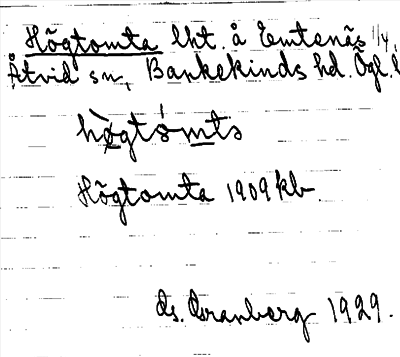 Högtomta lht. å Emtenäs 1/4,
Åtvid sn, Bankekinds hd. Ögl. l
hø̀gtómts
Högtomta 1909 kb
Cs. Granberg 1929.